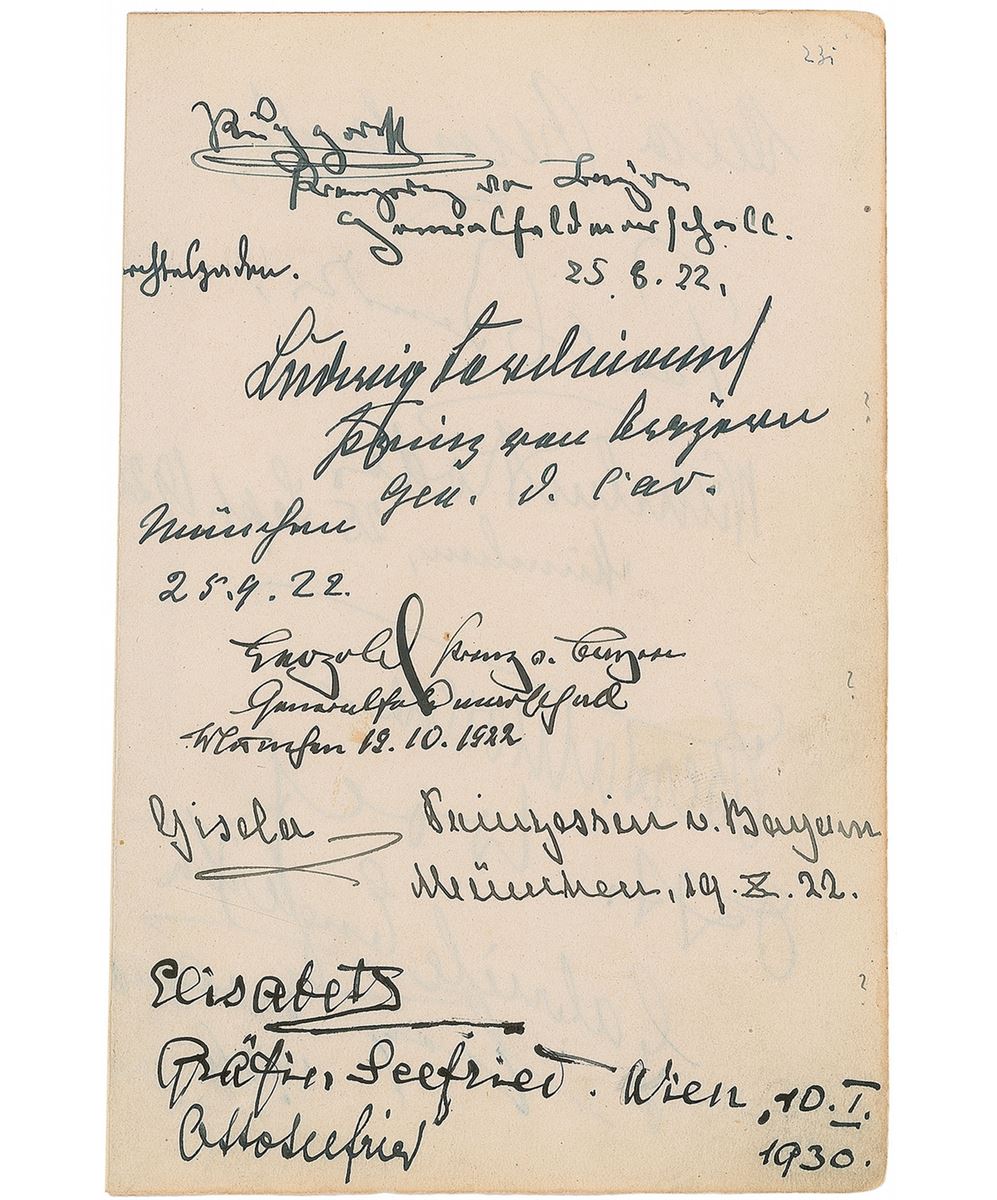 23i
Rupprecht
Kronprinz von Bayern
Generalfeldmarschall.
rchtesgaden.
25. 8. 22.
Ludwig Ferdinand
Prinz von Bayern
Gen. d. Cav.
München
25.9.22.
Leopold Prinz v. Bayern
Generalfeldmarschall
München 19.10.1922
Gisela Prinzessin v. Bayern
München, 19.X.22.
Elisabeth
Gräfin Seefried. Wien, 10.I.
Otto Seefried 1930.